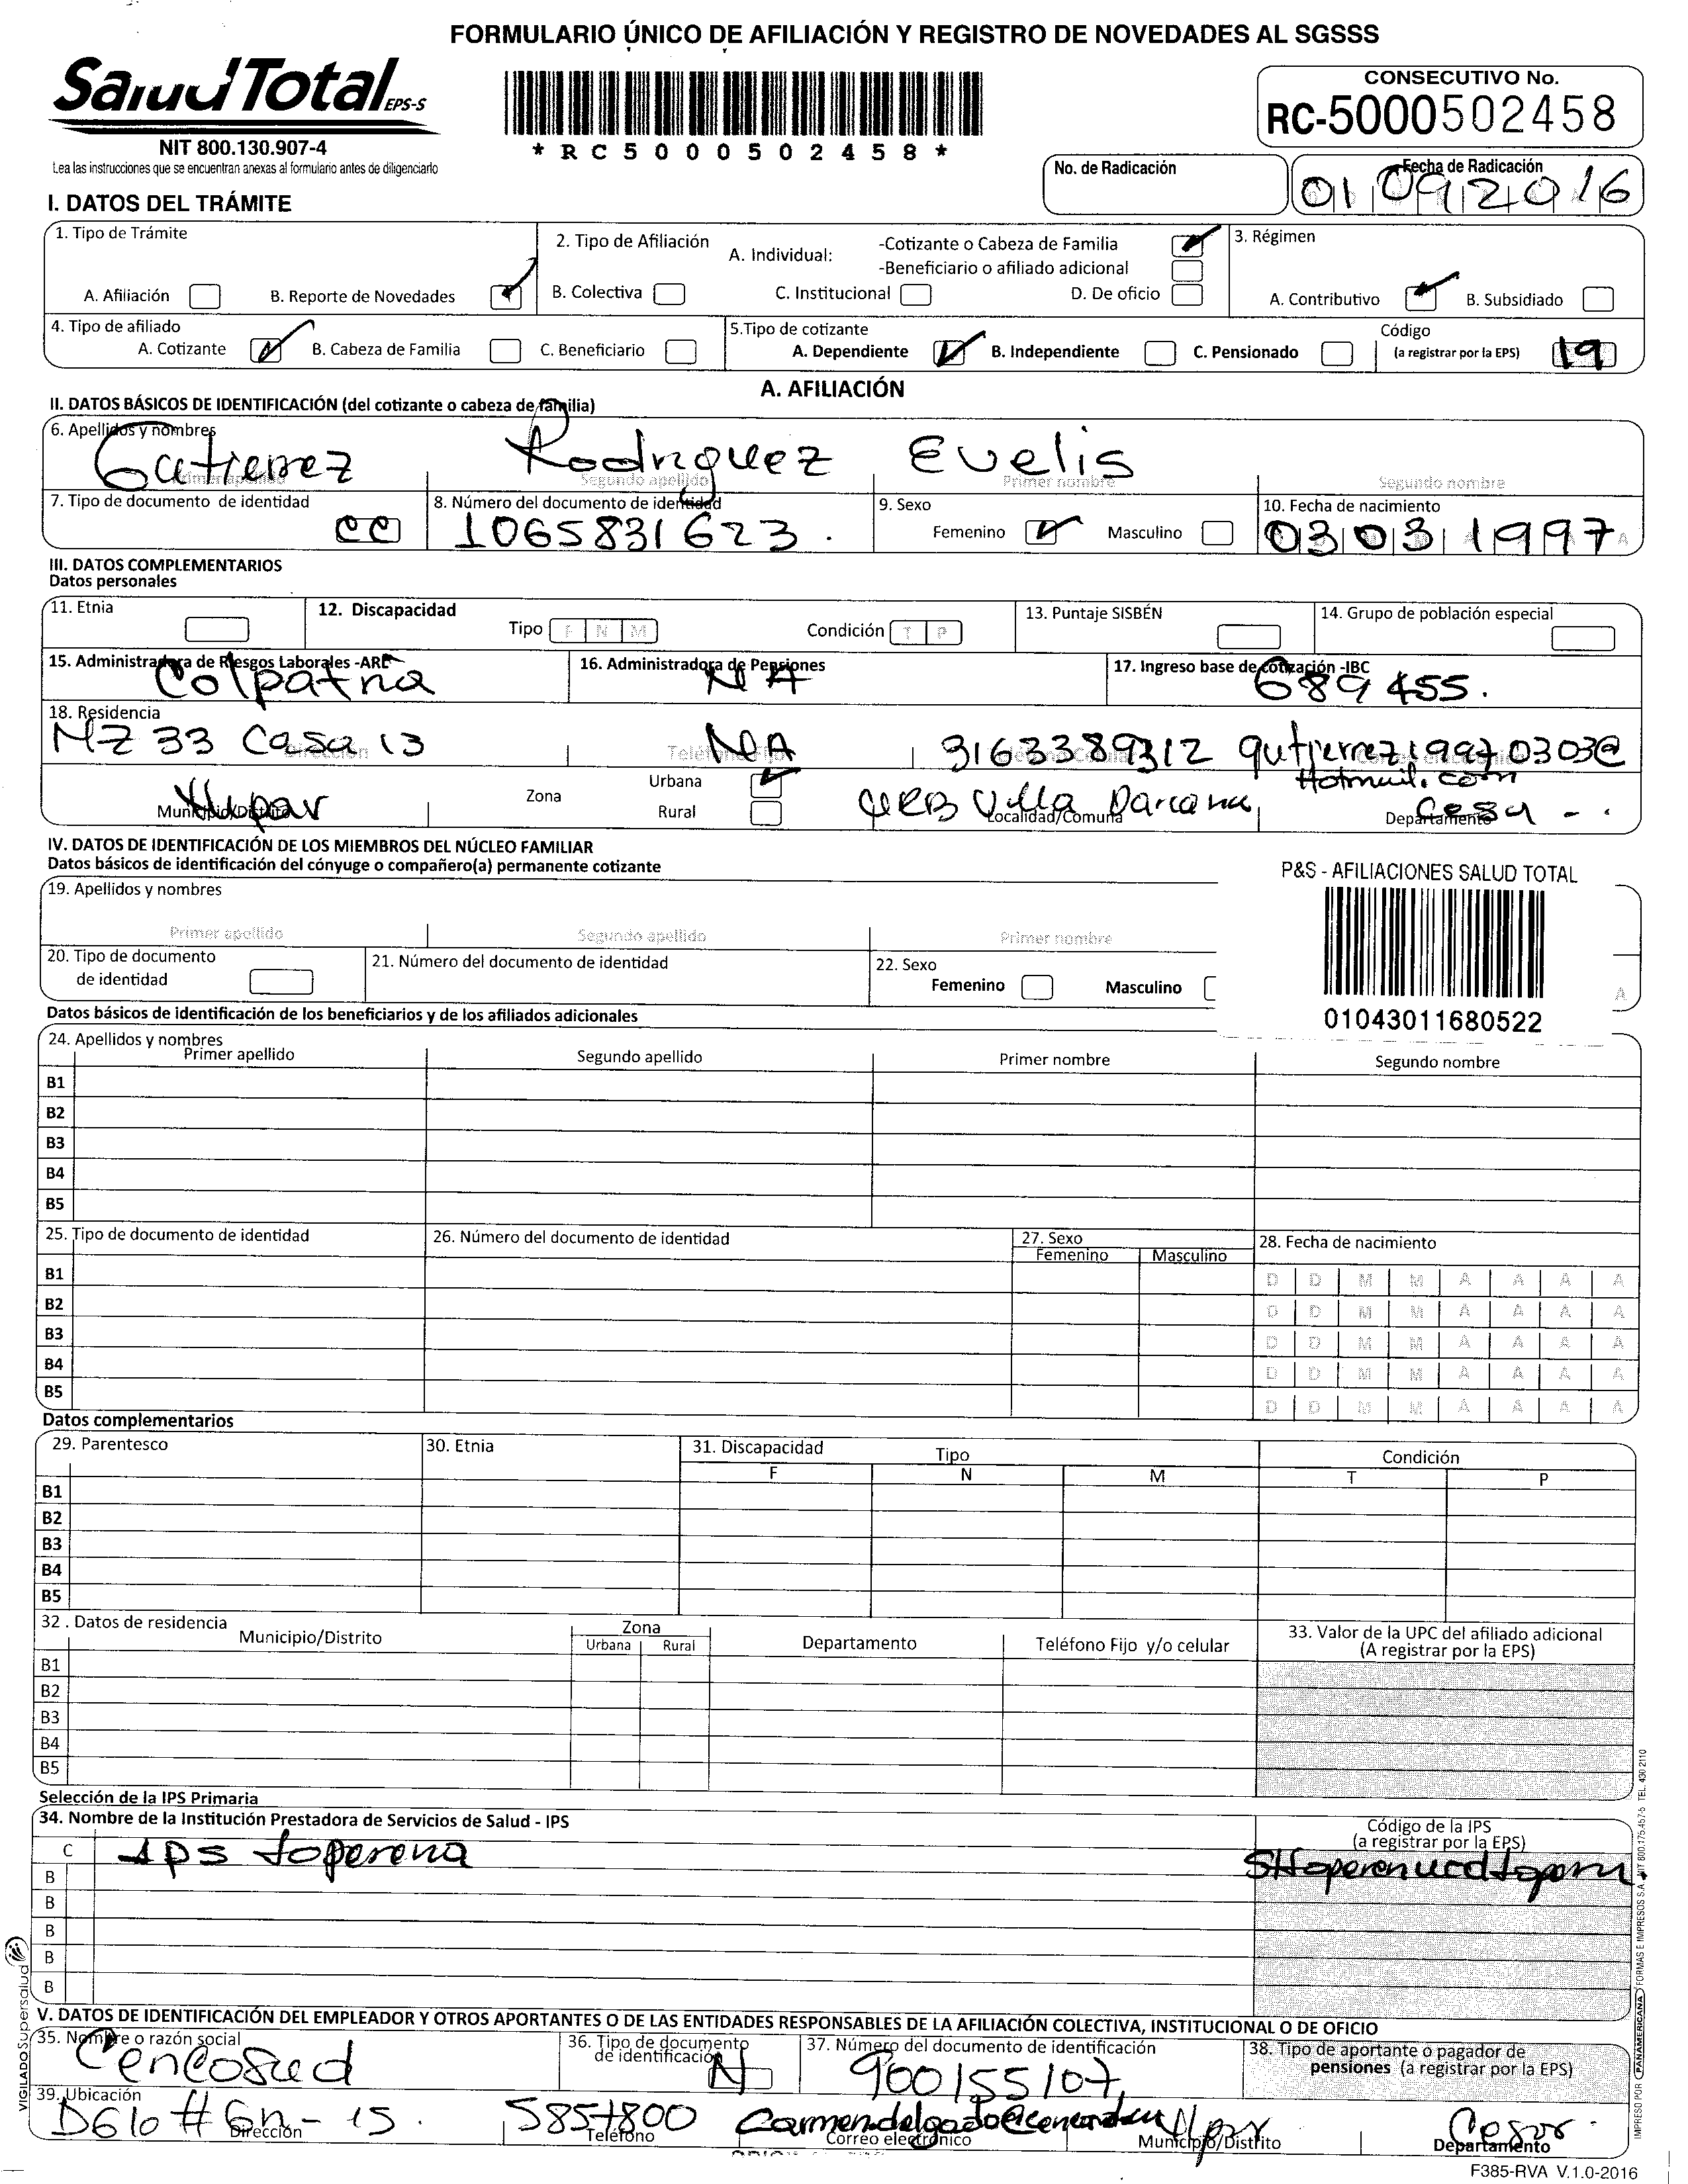 FORMULARIO ÚNICO DE AFILIACIÓN Y REGISTRO DE NOVEDADES AL SGSSS
Salud Total EPS-S
NIT 800.130.907-4
Lea las instrucciones que se encuentran anexas al formulario antes de diligenciarlo
*RC5000502458*
CONSECUTIVO No.
RC-5000502458
No. de Radicación
Fecha de Radicación
01 09 2016
I. DATOS DEL TRÁMITE
1. Tipo de Trámite
A. Afiliación B. Reporte de Novedades
2. Tipo de Afiliación A. Individual: -Cotizante o Cabeza de Familia
-Beneficiario o afiliado adicional
B. Colectiva C. Institucional D. De oficio
3. Régimen
A. Contributivo B. Subsidiado
4. Tipo de afiliado
A. Cotizante B. Cabeza de Familia C. Beneficiario
5.Tipo de cotizante
A. Dependiente B. Independiente C. Pensionado
Código
(a registrar por la EPS) 19
A. AFILIACIÓN
II. DATOS BÁSICOS DE IDENTIFICACIÓN (del cotizante o cabeza de familia)
6. Apellidos y nombres
Gutierrez Rodriguez Evelis
Primer apellido Segundo apellido Primer nombre Segundo nombre
7. Tipo de documento de identidad
CC
8. Número del documento de identidad
1065831623.
9. Sexo
Femenino Masculino
10. Fecha de nacimiento
03 03 1997
III. DATOS COMPLEMENTARIOS
Datos personales
11. Etnia
12. Discapacidad
Tipo F N M Condición T P
13. Puntaje SISBÉN
14. Grupo de población especial
15. Administradora de Riesgos Laborales -ARL
Colpatria
16. Administradora de Pensiones
NA
17. Ingreso base de cotización -IBC
689455.
18. Residencia
MZ 33 Casa 13 NA 3163389312 gutierrez19970303@
Hotmail.com
Dirección Teléfono Fijo
Vupar
Municipio/Distrito
Zona Urbana
Rural
URB Villa
Localidad/Comuna
Departamento
IV. DATOS DE IDENTIFICACIÓN DE LOS MIEMBROS DEL NÚCLEO FAMILIAR
Datos básicos de identificación del cónyuge o compañero(a) permanente cotizante
P&S - AFILIACIONES SALUD TOTAL
01043011680522
19. Apellidos y nombres
Primer apellido Segundo apellido Primer nombre
20. Tipo de documento
de identidad
21. Número del documento de identidad
22. Sexo
Femenino Masculino
A
Datos básicos de identificación de los beneficiarios y de los afiliados adicionales
24. Apellidos y nombres
Primer apellido Segundo apellido Primer nombre Segundo nombre
B1
B2
B3
B4
B5
25. Tipo de documento de identidad 26. Número del documento de identidad 27. Sexo 28. Fecha de nacimiento
Femenino Masculino
B1 D D M M A A A A
B2 D D M M A A A A
B3 D D M M A A A A
B4 D D M M A A A A
B5 D D M M A A A A
Datos complementarios
29. Parentesco 30. Etnia 31. Discapacidad Tipo Condición
F N M T P
B1
B2
B3
B4
B5
32 . Datos de residencia
Municipio/Distrito Zona Departamento Teléfono Fijo y/o celular
Urbana Rural
33. Valor de la UPC del afiliado adicional
(A registrar por la EPS)
B1
B2
B3
B4
B5
Selección de la IPS Primaria
34. Nombre de la Institución Prestadora de Servicios de Salud - IPS
Código de la IPS
(a registrar por la EPS)
C IPS toperena
B
B
B
B
B
V. DATOS DE IDENTIFICACIÓN DEL EMPLEADOR Y OTROS APORTANTES O DE LAS ENTIDADES RESPONSABLES DE LA AFILIACIÓN COLECTIVA, INSTITUCIONAL O DE OFICIO
35. Nombre o razón social
Cencosud
36. Tipo de documento
de identificación
N
37. Número del documento de identificación
900155107
38. Tipo de aportante o pagador de
pensiones (a registrar por la EPS)
39. Ubicación
# 6n - 15. 5857800 Cesar
Dirección Teléfono Correo electrónico Municipio/Distrito Departamento
F385-RVA V.1.0-2016
VIGILADO Supersalud
IMPRESO POR PANAMERICANA FORMAS E IMPRESOS S.A. NIT 800.175.457-5 TEL. 430 2110